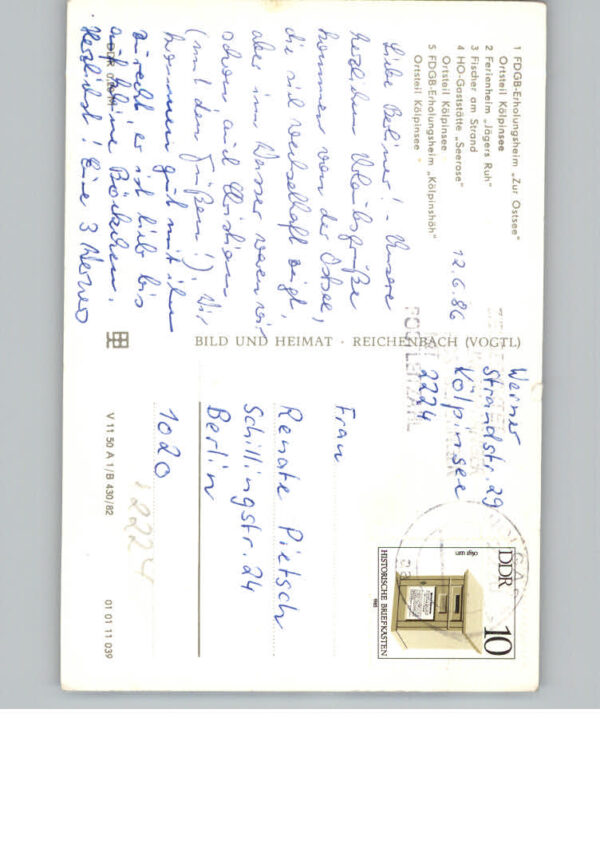 1 FDGB-Erholungsheim „Zur Ostsee"
Ortsteil Kölpinsee
2 Ferienheim „Jägers Ruh"
3 Fischer am Strand
4 HO-Gaststätte „Seerose"
Ortsteil Kölpinsee
5 FDGB-Erholungsheim „Kölpinshöh"
Ortsteil Kölpinsee
12.6.86
Liebe Berliner! – Unsere
herzlichen Urlaubsgrüße
kommen von der Ostsee,
die sich wechselhaft zeigt,
aber im Wasser waren wir
schon auch Christian
(mit den Füßen!) Wir
kommen gut mit ihm
zurecht, er ist lieb bis
auf kleine Böckchen.
Herzlichst! Eure 3 Werner
BILD UND HEIMAT · REICHENBACH (VOGTL)
Werner
Strandstr. 29
Kölpinsee
2224
POSTLEITZAHL
DDR
10
olign um
HISTORISCHE BRIEFKASTEN
1985
Frau
Renate Pietsch
Schillingstr. 24
Berlin
1020
2224
V 11 50 A 1/B 430/82
01 01 11 039